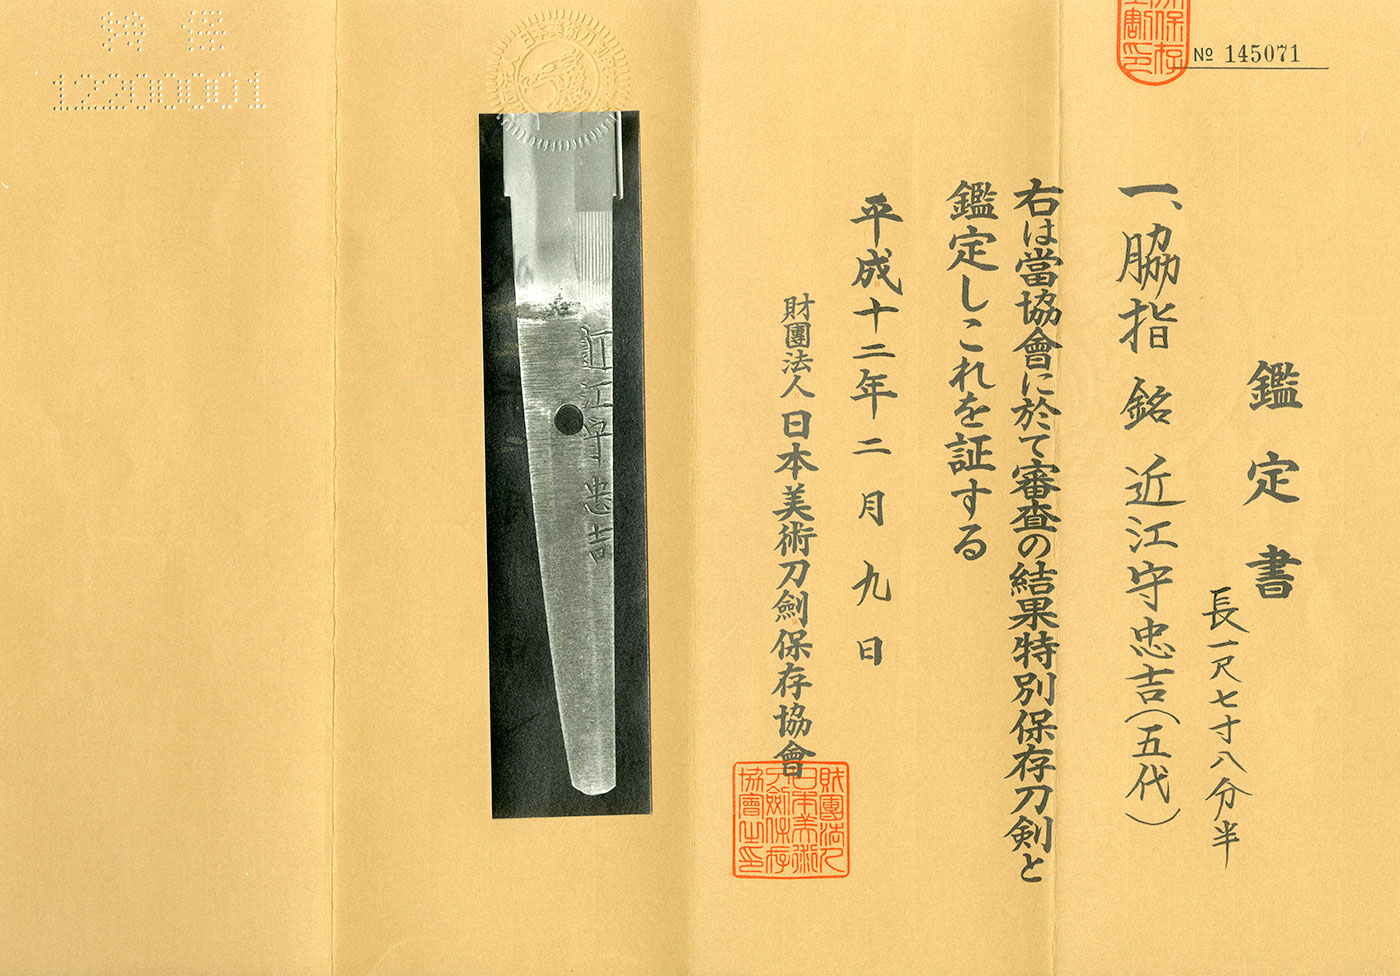 № 145071
鑑定書
長一尺七寸八分半
一、脇指 銘 近江守忠吉(五代)
右は當協會に於て審査の結果特別保存刀剣と
鑑定しこれを証する
平成十二年二月九日
財團法人日本美術刀劍保存協會
財團法人日本美術刀劍保存協會之印
近江守忠吉
特保
12200001